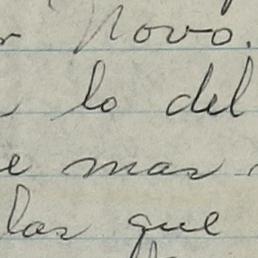 Novo.
lo del
mas
las que